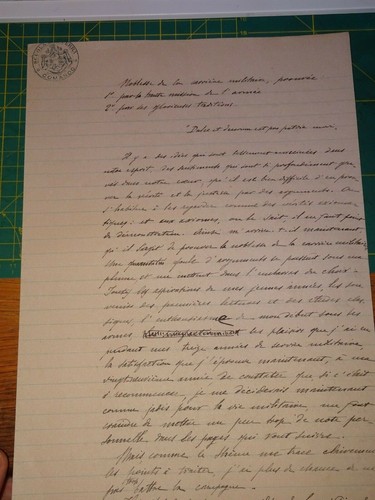 Noblesse de la carrière militaire, prouvée
1° par la haute mission de l'armée
2° par ses glorieuses traditions.
"Dulce et decorum est pro patria mori."
Il y a des idées que sont tellement enracinées dans
notre esprit, des sentiments qui sont si profondément gra-
vés dans notre cœur, qu'il est bien difficile d'en prou-
ver la vérité et de justifier par des arguments. On
s'habitue à les regarder comme des vérités axioma-
tiques: et aux axiomes, on le sait, il ne faut point
de démonstration. Ainsi m'arrive-t-il maintenant
qu'il s'agit de prouver la noblesse de la carrière militaire.
Une foule d'arguments se pressent sous ma
plume et me mettent dans l'embarras du choix.
Toutes les aspirations de mes jeunes années, les sou-
venirs des premières lectures et des études clas-
siques, l'enthousiasme de mon début sous les
armes, les plaisirs que j'ai eu
pendant mes treize années de service militaire,
la satisfaction que j'éprouve maintenant, à ma
année de constater que si c'était
à recommencer, je me déciderais maintenant
comme jadis pour la vie militaire, me font
craindre de mettre un peu trop de note per-
sonnelle dans les pages qui vont suivre.
Mais comme le thème me trace clairement
les points à traiter, j'ai plus de chance de ne
pas trop battre la campagne.